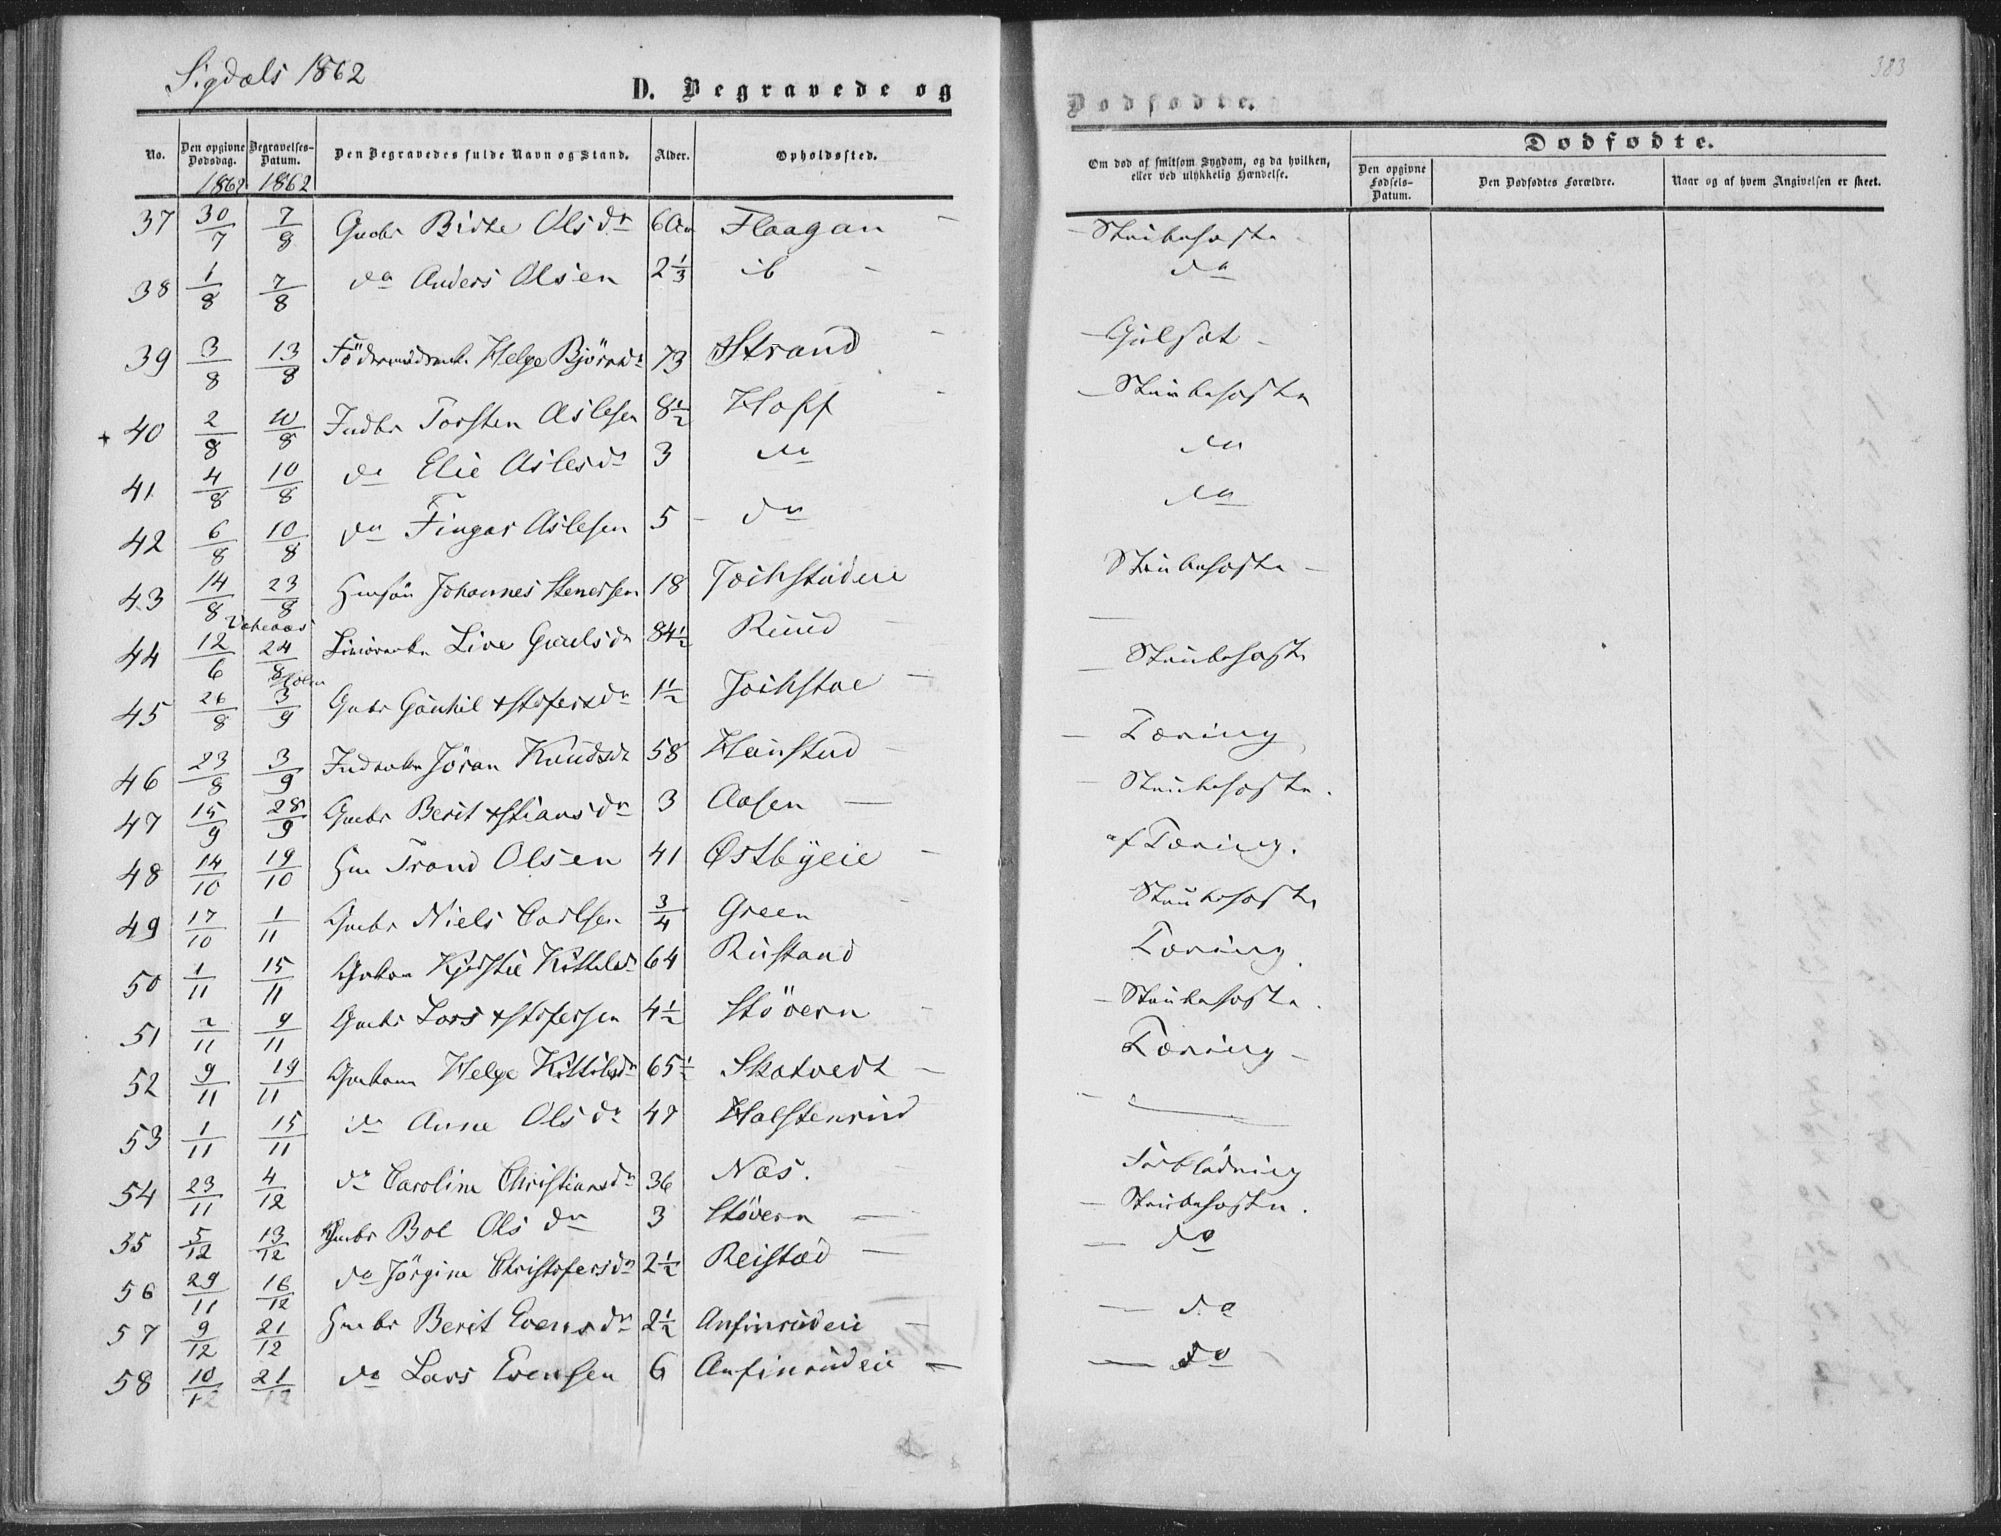 Sigdals 1862
D. Begravede og
Dødfødte.
383
No. Den opgivne Dødsdag. Begravelses-Datum. Den Begravedes fulde Navn og Stand. Alder. Opholdssted. Om død af smitsom Sygdom, og da hvilken, eller ved ulykkelig Hændelse. Dødfødte.
Den opgivne Fødsels-Datum. Den Dødfødtes Forældre. Naar og af hvem Angivelsen er skeet.
1862 1862
37 30/7 7/8 Gmbr Birte Olsdr 6 Flaagan - Strubehoste
38 1/8 7/8 do Anders Olsen 2 1/3 ib - do
39 3/8 13/8 Helge Bjørnsdr 73 Strand - Gulsot -
40 2/8 10/8 Indbr Torsten Aslesen 8 1/2 Hoff - Strubehoste
41 4/8 10/8 do Elie Aslesdr 3 do do
42 6/8 10/8 do Fingar Aslesen 5 - do do
43 14/8 23/8 Johannes Stenersen 18 Strubehoste -
44 12/6 24/8 Live Gulsdr 84 1/2 Ruud -
45 26/8 3/9 Gmbr Gunhil +stofersdr 1 1/2 - Strubehoste
46 23/8 3/9 Jöran Knudsdr 58 - Tæring
47 15/9 28/9 Gmbr Berit +stiansdr 3 Aasen - Strubehoste.
48 14/10 19/10 Hm Trond Olsen 41 Østbyeie - af Tæring.
49 17/10 1/11 Gmbr Niels Carlsen 3/4 Green Strubehoste
50 1/11 15/11 Kjerstie Kittelsdr 64 Rustand Tæring.
51 2/11 9/11 Gmbr Lars +stofersen 4 1/2 Stövern - Strubehoste.
52 9/11 19/11 Gmkone Helge Kittilsdr 65 1/2 Skatvedt - Tæring -
53 1/11 15/11 do Anne Olsdr 47 Halstenrud -
54 23/11 4/12 do Caroline Christiansdr 36 Næs. Forblödning
55 5/12 13/12 Gmbr Boe Olsdr 3 Stövern - Strubehoste.
56 29/11 16/12 do Jörgine Christofersdr 2 1/2 Reistad - do
57 9/12 21/12 Hmbr Berit Evensdr 2 1/2 Anfinrudeie - do
58 10/12 21/12 do Lars Evensen 6 Anfinrudeie - do